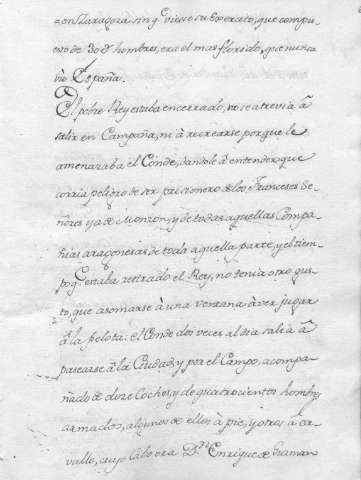 en Zaragoza sin q̃ viese su Exercito, que compu-
esto de 30U hombres, era el mas florido, que nunca
vio España.
El pobre Rey estaba encerrado, no se atrevia à
salir en Campaña, ni à recrearse porque le
amenazaba el Conde, dandole à entender que
corria peligro de ser prisionero de los Franceses Se-
ñores ya de Monzon, y de todas aquellas Compa-
ñias aragonesas de toda aquella parte, y el tiem-
po q̃ estaba retirado el Rey, no tenia otro gus-
to, que asomarse à una ventana à ver jugar
à la pelota: el Conde dos veces al dia salia à
pasearse à la Ciudad, y por el Campo, acompa-
ñado de doze Coches, y de quatrocientos hombres
armados, algunos de ellos à pie, y otros à ca-
vallo, cuyo Cabo era Dⁿ Enrique de Graman